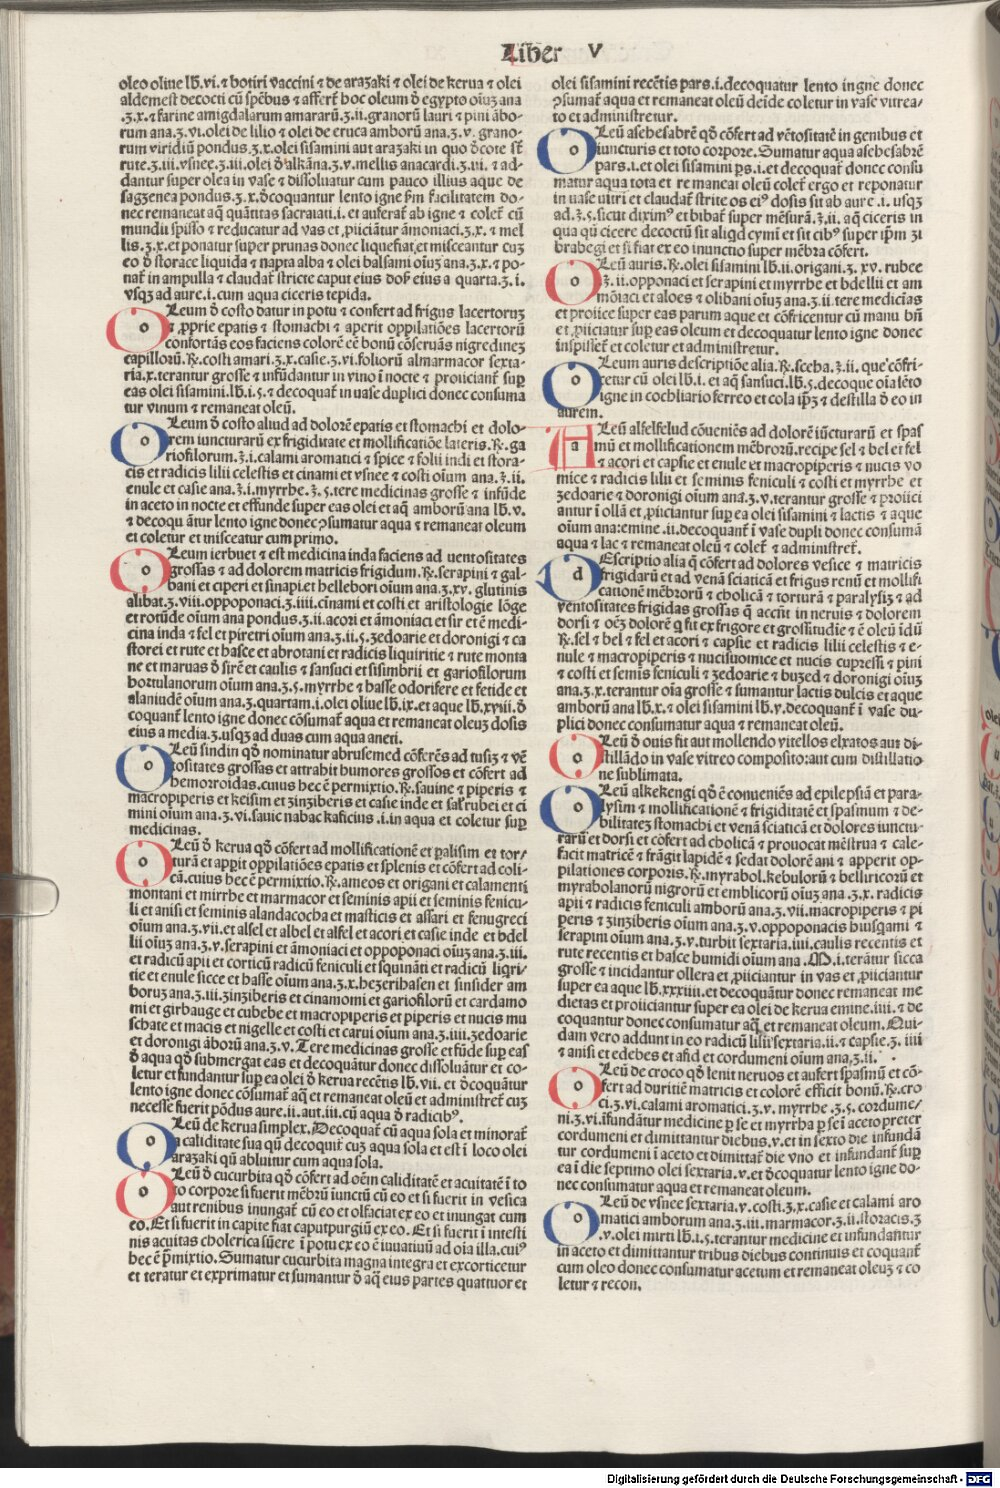 Liber V
oleo oliue lb. vi. ⁊ botiri vaccini ⁊ de arazaki ⁊ olei de kerua ⁊ olei
aldemest decocti cū spēbus ⁊ affert̄ hoc oleum d̄ egypto oīuz ana
.ʒ.x. ⁊ farine amigdalarum amararū.ʒ.ii. granorū lauri ⁊ pini ābo-
rum ana.ʒ.vi. olei de lilio ⁊ olei de eruca amborū ana.ʒ.v. grano-
rum viridiū pondus.ʒ.x. olei sisamini aut arazaki in quo d̄cote st̄
rute.ʒ.iii. vsnee.ʒ.iii. olei d̄ alkāna.ʒ.v. mellis anacardi.ʒ.vi. ⁊ ad-
dantur super olea in vase ⁊ dissoluatur cum pauco illius aque de
sagzenea pondus.ʒ.x. d̄coquantur lento igne fm̄ facilitatem do-
nec remaneat aq̄ quātitas sacraiati.i. et auferat̄ ab igne ⁊ colet̄ cū
mundū spisso ⁊ reducatur ad vas et ꝓiiciātur āmoniaci.ʒ.x. ⁊ mel
lis.ʒ.x. et ponatur super prunas donec liquefiat, et misceantur cuz
eo d̄ storace liquida ⁊ napta alba ⁊ olei balsami oīuz ana.ʒ.x. ⁊ po-
nat̄ in ampulla ⁊ claudat̄ stricte caput eius dos̄ eius a quarta.ʒ.i.
vsqz ad aure.i. cum aqua ciceris tepida.
OLeum d̄ costo datur in potu ⁊ confert ad frigus lacertoruz
⁊ ꝓprie epatis ⁊ stomachi ⁊ aperit oppilatiōes lacertorū
confortās eos faciens colorē cē bonū cōseruās nigredinez
capillorū. ℞. costi amari.ʒ.x. casie.ʒ.vi. foliorū almarmacor sexta-
ria.x. terantur grosse ⁊ infūdantur in vino ī nocte ⁊ proiiciant̄ sup̄
eas olei sisamini. lb.i.5. ⁊ decoquat̄ in vase duplici donec consuma
tur vinum ⁊ remaneat oleū.
OLeum d̄ costo aliud ad dolorē epatis et stomachi et dolo-
rem iuncturarū ex frigiditate et mollificatiōe lateris. ℞. ga
riofilorum.ʒ.i. calami aromatici ⁊ spice ⁊ folii indi et stora-
cis et radicis lilii celestis et cinami et vsnee ⁊ costi oīum ana.ʒ.ii.
enule et casie ana.ʒ.i. myrrhe.ʒ.5. tere medicinas grosse ⁊ infūde
in aceto in nocte et effunde super eas olei et aq̄ amborū ana lb.v.
⁊ decoqu āntur lento igne donec ꝯsumatur aqua ⁊ remaneat oleum
et coletur et misceatur cum primo.
OLeum ierbuet ⁊ est medicina inda faciens ad uentositates
grossas ⁊ ad dolorem matricis frigidum. ℞. serapini ⁊ gal-
bani et ciperi et sinapi et hellebori oīum ana.ʒ.xv. glutinis
alibat.ʒ.viii. oppoponaci.ʒ.iiii. cīnami et costi et aristologie lōge
et rotūde oīum ana pondus.ʒ.ii. acori et āmoniaci et sir et ē medi-
cina inda ⁊ fel et piretri oīum ana.ʒ.ii.5. zedoarie et doronigi ⁊ ca
storei et rute et hasce et abrotani et radicis liquiritie ⁊ rute monta
ne et maruas d̄ sirē et caulis ⁊ sansuci et sisimbrii et gariofilorum
hortulanorum oīum ana.ʒ.5. myrrhe ⁊ hasse odorifere et fetide et
alaniudē oīum ana.ʒ. quartam.i. olei oliue lb.ix. et aque lb.xviii. d̄
coquant̄ lento igne donec cōsumat̄ aqua et remaneat oleuz dosis
eius a media.ʒ. usqz ad duas cum aqua aneti.
OLeū sindin qd̄ nominatur abrusemed cōferēs ad tusiz ⁊ vē
tositates grossas et attrahit humores grossos et cōfert ad
hemorroidas. cuius hec ē permixtio. ℞. sauine ⁊ piperis ⁊
macropiperis et keisim et zinziberis et casie inde et sal rubei et ci
mini oīum ana.ʒ.vi. sauic nabac kaficius.i. in aqua et coletur sup̄
medicinas.
OLeū d̄ kerua qd̄ cōfert ad mollificationē et palisim et tor-
turā et aperit oppilatiōes epatis et splenis et cōfert ad coli-
cā. cuius hec ē permixtio. ℞. ameos et origani et calamenti
montani et mirrhe et marmacor et seminis apii et seminis fenicu-
li et anisi et seminis alandacocha et masticis et assari et fenugreci
oīum ana.ʒ.vii. et alsel et albel et alfel et acori et casie inde et bdel
lii oīuz ana.ʒ.v. serapini et āmoniaci et oppoponaci oīuz ana.ʒ.iii.
et radicū apii et corticū radicū feniculi et squināti et radicū liqri-
tie et enule sicce et hasse oīum ana.ʒ.x. hezeribasen et sinsider am
boruz ana.ʒ.iii. zinziberis et cinamomi et gariofilorū et cardamo
mi et girbauge et cubebe et macropiperis et piperis et nucis mu
schate et macis et nigelle et costi et carui oīum ana.ʒ.iiii. zedoarie
et doronigi āborū ana.ʒ.v. Tere medicinas grosse et fūde sup̄ eas
d̄ aqua qd̄ submergat eas et decoquātur donec dissoluātur et co-
letur et fundantur sup̄ ea olei d̄ kerua recētis lb.vii. et d̄coquātur
lento igne donec cōsumat̄ aq̄ et remaneat oleū et administret̄ cuz
necesse fuerit pōdus aure.ii. aut.iii. cū aqua d̄ radicibꝰ.
OLeū de kerua simplex. Decoquat̄ cū aqua sola et minorat̄
a caliditate sua qū decoquit̄ cuz aqua sola et est ī loco olei
arazaki qū abluitur cum aqua sola.
OLeū d̄ cucurbita qd̄ cōfert ad oēm caliditatē et acuitatē ī to
to corpore si fuerit mēbrū iunctū cū eo et si fuerit in vesica
aut renibus inungat̄ cū eo et olfaciat ex eo et inungat cum
eo. Et si fuerit in capite fiat caputpurgiū ex eo. Et si fuerit ī intesti
nis acuitas cholerica sūere ī potu ex eo ē iuuatiuū ad oīa illa. cuiꝰ
hec ē p̄mixtio. Sumatur cucurbita magna integra et excorticetur
et teratur et exprimatur et sumantur d̄ aq̄ eius partes quattuor et
olei sisamini recētis pars.i. decoquatur lento ingne donec
ꝯsumat̄ aqua et remaneat oleū deīde coletur in vase vitrea-
to et administretur.
OLeū asehesabrē qd̄ cōfert ad vētositatē in genibus et
iuncturis et toto corpore. Sumatur aqua asehesabrē
pars.i. et olei sisamini ps̄.i. et decoquat̄ donec consu
matur aqua tota et re maneat oleū colet̄ ergo et reponatur
in vase uitri et claudat̄ strīte os eiꝰ dosis sit ab aure.i. usqz
ad.ʒ.5. sicut diximꝰ et bibat̄ super mēsurā.ʒ.ii. aq̄ ciceris in
qua qū cicere decoctū sit aliqd cymī et sit cibꝰ super ip̄m zi
brabegi et si fiat ex eo inunctio super mēbra cōfert.
OLeū auris. ℞. olei sisamini lb.ii. origani.ʒ.xv. rubee
.ʒ.ii. opponaci et serapini et myrrhe et bdellii et am
mōiaci et aloes ⁊ olibani oīuz ana.ʒ.ii. tere medicīas
et proiice super eas parum aque et cōfricentur cū manu bn̄
et ꝓiiciatur sup̄ eas oleum et decoquatur lento igne donec
inspisset̄ et coletur et administretur.
OLeum auris descriptiōe alia. ℞. sceba.ʒ.ii. que cōfri-
cetur cū olei lb.i. et aq̄ sansuci. lb.5. decoque oīa lēto
igne in cochliario ferreo et cola ip̄z ⁊ destilla d̄ eo in
aurem.
ALeū alfelfelud cōueniēs ad dolorē iūcturarū et spas
mū et mollificationem mēbrorū. recipe sel ⁊ bel et fel
⁊ acori et capsie et enule et macropiperis ⁊ nucis vo
mice ⁊ radicis lilii et seminis feniculi ⁊ costi et myrrhe et
zedoarie ⁊ doronigi oīum ana.ʒ.v. terantur grosse ⁊ proiici
antur ī ollā et ꝓiiciantur sup̄ ea olei sisamini ⁊ lactis ⁊ aque
oīum ana: emine.ii. decoquant̄ ī vase dupli donec consumā
aqua ⁊ lac ⁊ remaneat oleū ⁊ colet̄ ⁊ administret̄.
DEscriptio alia q̄ cōfert ad dolores vesice ⁊ matricis
frigidarū et ad venā sciaticā et frigus renū et mollifi
cationē mēbrorū ⁊ cholicā ⁊ torturā ⁊ paralysiz ⁊ ad
ventositates frigidas grossas q̄ accn̄t in neruis ⁊ dolorem
dorsi ⁊ oēz dolorē q̄ fit ex frigore et grossitudie ⁊ ē oleū idū
℞. sel ⁊ bel ⁊ fel et acori ⁊ capsie et radicis lilii celestis ⁊ e-
nule ⁊ macropiperis ⁊ nucisuomice et nucis cupressi ⁊ pini
⁊ costi et semīs feniculi ⁊ zedoarie ⁊ buzed ⁊ doronigi oīuz
ana.ʒ.x. terantur oīa grosse ⁊ sumantur lactis dulcis et aque
amborū ana lb.x. ⁊ olei sisamini lb.v. decoquant̄ ī vase du-
plici donec consumatur aqua ⁊ remaneat oleū.
OLeū d̄ ouis fit aut mollendo vitellos elxatos aut di-
stillādo in vase vitreo composito: aut cum distillatio
ne sublimata.
OLeū alkekengi qd̄ ē conueniēs ad epilepsiā et para-
lysim ⁊ mollificationē ⁊ frigiditatē et spasmum ⁊ de-
bilitatez stomachi et venā sciaticā et dolores iunctu-
rarū et dorsi et cōfert ad cholicā ⁊ prouocat mēstrua ⁊ cale-
facit matricē ⁊ frāgit lapidē ⁊ sedat dolorē ani ⁊ apperit op-
pilationes corporis. ℞. myrabol. kebulorū ⁊ belliricorū et
myrabolanorū nigrorū et emblicorū oīuz ana.ʒ.x. radicis
apii ⁊ radicis feniculi amborū ana.ʒ.vii. macropiperis ⁊ pi
peris ⁊ zinziberis oīum ana.ʒ.v. oppoponacis hiusqami ⁊
serapini oīum ana.ʒ.v. turbit sextaria.iiii. caulis recentis et
rute recentis et hasce humidi oīum ana.M.i. terātur sicca
grosse ⁊ incidantur ollera et ꝓiiciantur in vas et ꝓiiciantur
super ea aque lb.xxxiiii. et decoquātur donec remaneat me
dietas et proiiciantur super ea olei de kerua emine.iiii. ⁊ de
coquantur donec consumatur aq̄ et remaneat oleum. Qui-
dam vero addunt in eo radicū lilii sextaria.ii. ⁊ capsie.ʒ.iiii
⁊ anisi et edebes et asid et cordumeni oīum ana.ʒ.ii.
OLeū de croco qd̄ lenit neruos et aufert spasmū et cō-
fert ad duritiē matricis et colorē efficit bonū. ℞. cro
ci.ʒ.vi. calami aromatici.ʒ.v. myrrhe.ʒ.5. cordume/
ni.ʒ.vi. īfundātur medicine p se et myrrha p se ī aceto preter
cordumeni et dimittantur diebus.v. et in sexto die infundā
tur cordumeni ī aceto et dimittat̄ die vno et infundant̄ sup̄
ea ī die septimo olei sextaria.v. et d̄coquatur lento igne do-
nec consumatur aqua et remaneat oleum.
OLeū de vsnee sextaria.v. costi.ʒ.x. casie et calami aro
matici amborum ana.ʒ.iii. marmacor.ʒ.ii. storacis.ʒ
.v. olei mirti lb.i.5. terantur medicine et infundantur
in aceto et dimittantur tribus diebus continuis et coquant̄
cum oleo donec consumatur acetum et remaneat oleuz ⁊ co
letur ⁊ recon.
Digitalisierung gefördert durch die Deutsche Forschungsgemeinschaft - DFG